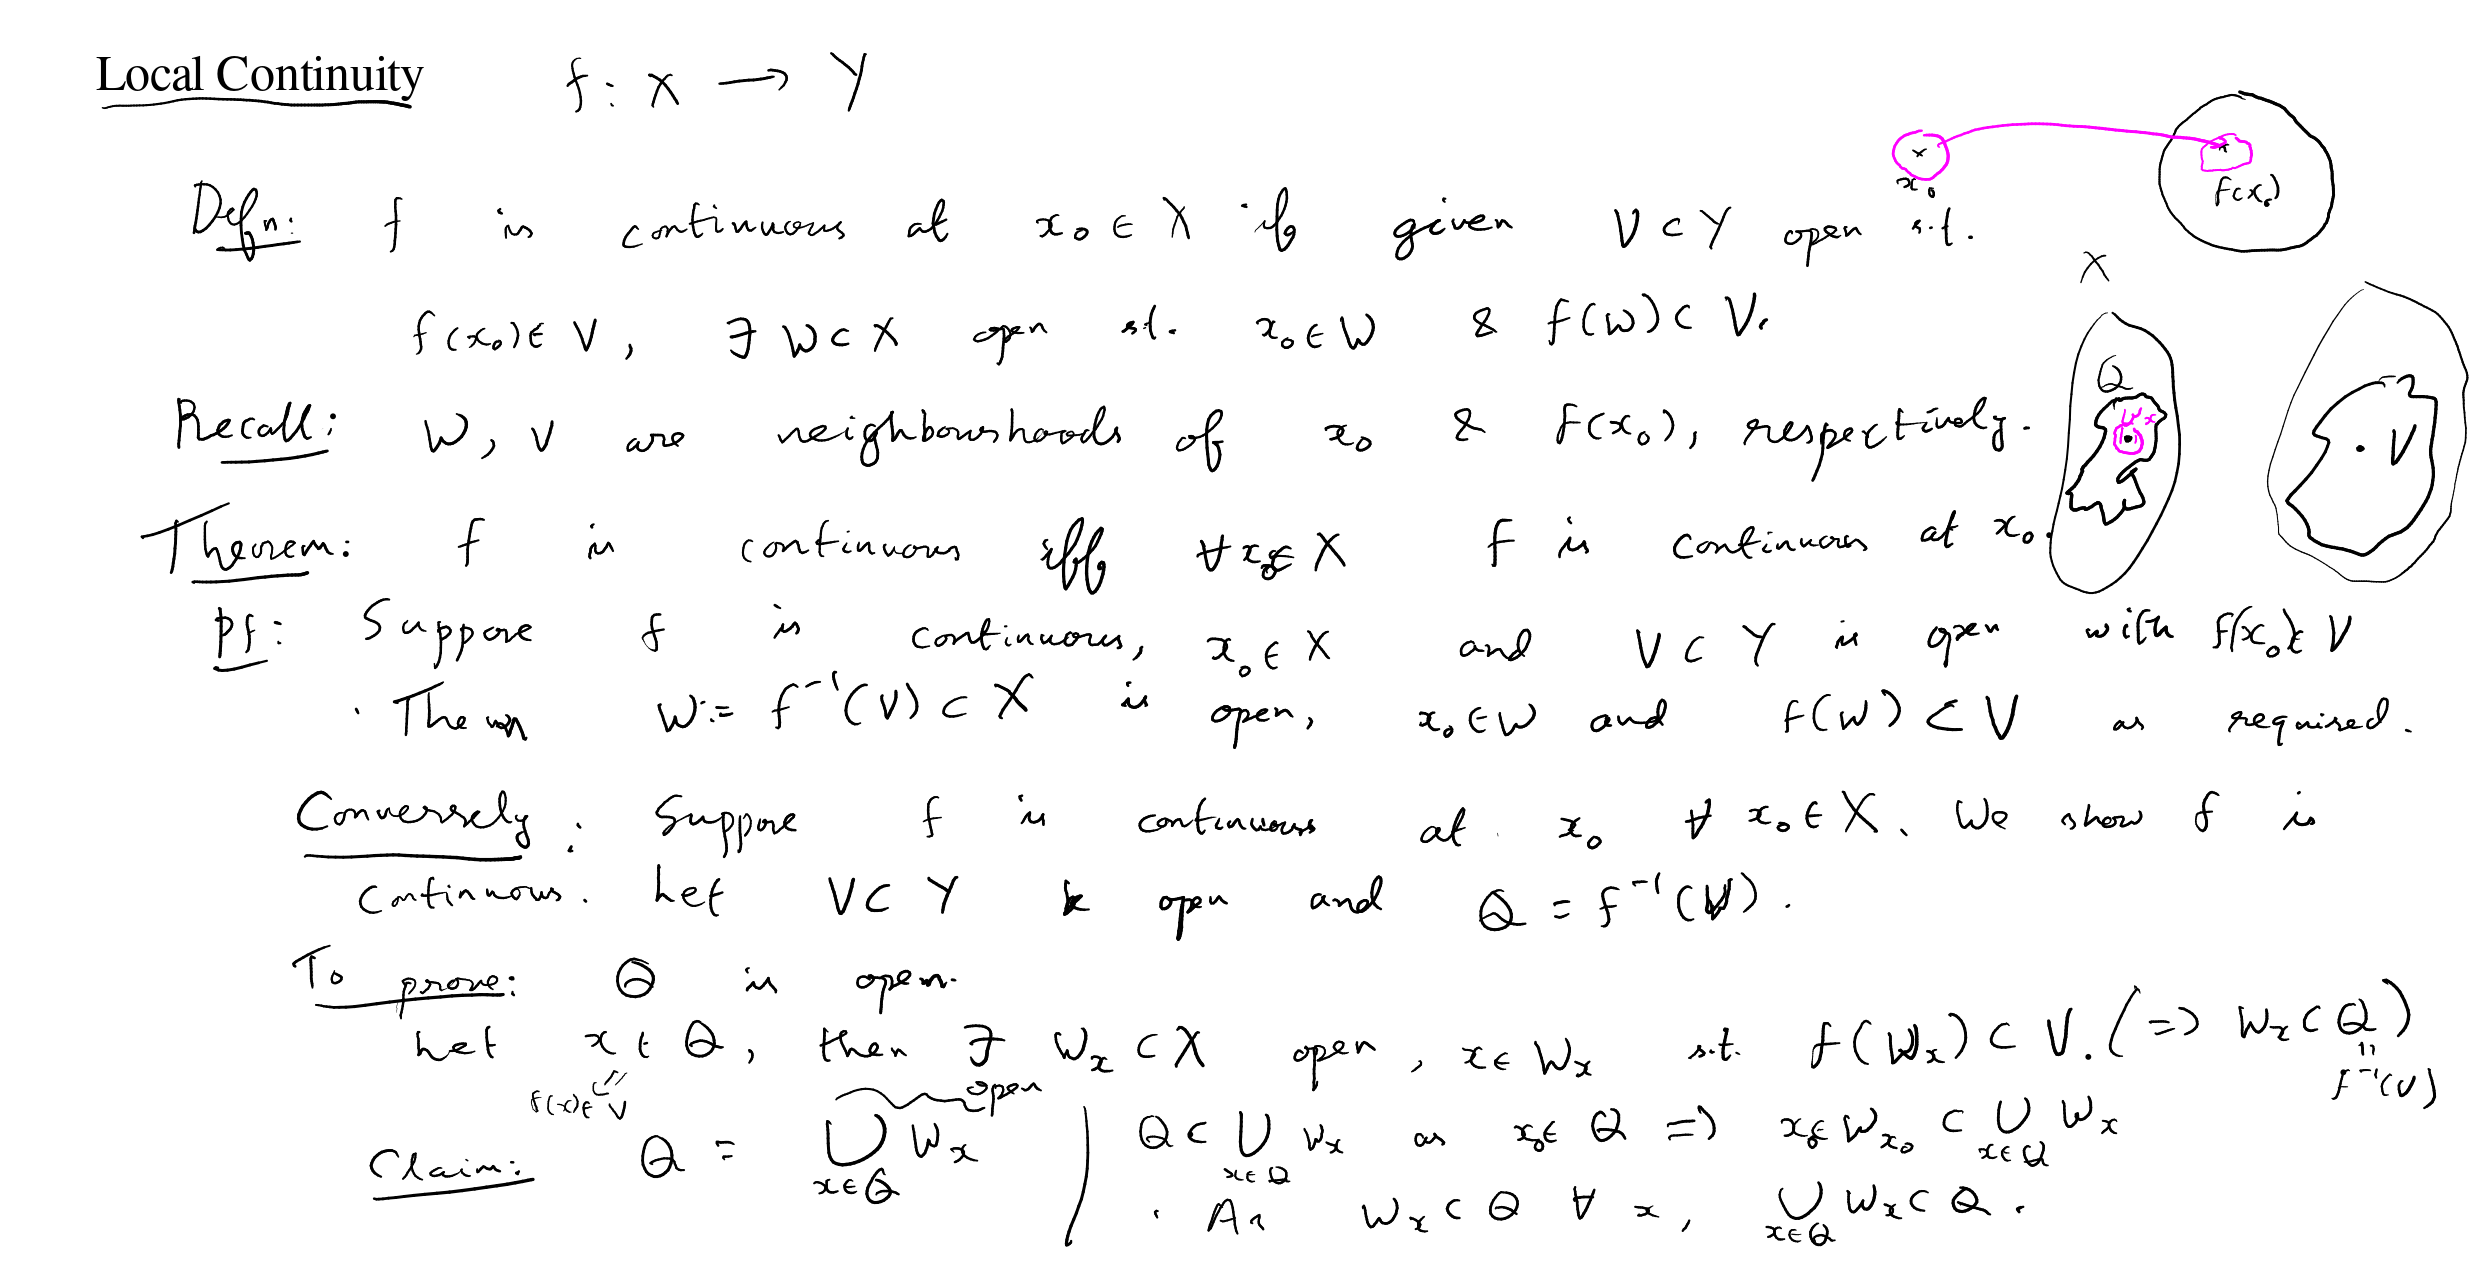 Local Continuity f : X → Y
Defn: f is continuous at x₀ ∈ X if given V ⊂ Y open s.t.
f(x₀) ∈ V, ∃ W ⊂ X open s.t. x₀ ∈ W & f(W) ⊂ V.
x₀ f(x₀)
X
Q Wₓ V
Recall: W, V are neighbourhoods of x₀ & f(x₀), respectively.
Theorem: f is continuous iff ∀ x₀ ∈ X f is continuous at x₀.
Pf: Suppose f is continuous, x₀ ∈ X and V ⊂ Y is open with f(x₀) ∈ V
· Then W := f⁻¹(V) ⊂ X is open, x₀ ∈ W and f(W) ⊂ V as required.
Conversely: Suppose f is continuous at x₀ ∀ x₀ ∈ X. We show f is
continuous. Let V ⊂ Y be open and Q = f⁻¹(V).
To prove: Q is open.
Let x ∈ Q, then ∃ Wₓ ⊂ X open, x ∈ Wₓ s.t. f(Wₓ) ⊂ V. (=> Wₓ ⊂ Q)
f(x) ∈ V open " f⁻¹(V)
Claim: Q = ⋃_{x∈Q} Wₓ | Q ⊂ ⋃_{x∈Q} Wₓ as x₀ ∈ Q => x₀ ∈ W_{x₀} ⊂ ⋃_{x∈Q} Wₓ
· As Wₓ ⊂ Q ∀ x, ⋃_{x∈Q} Wₓ ⊂ Q.